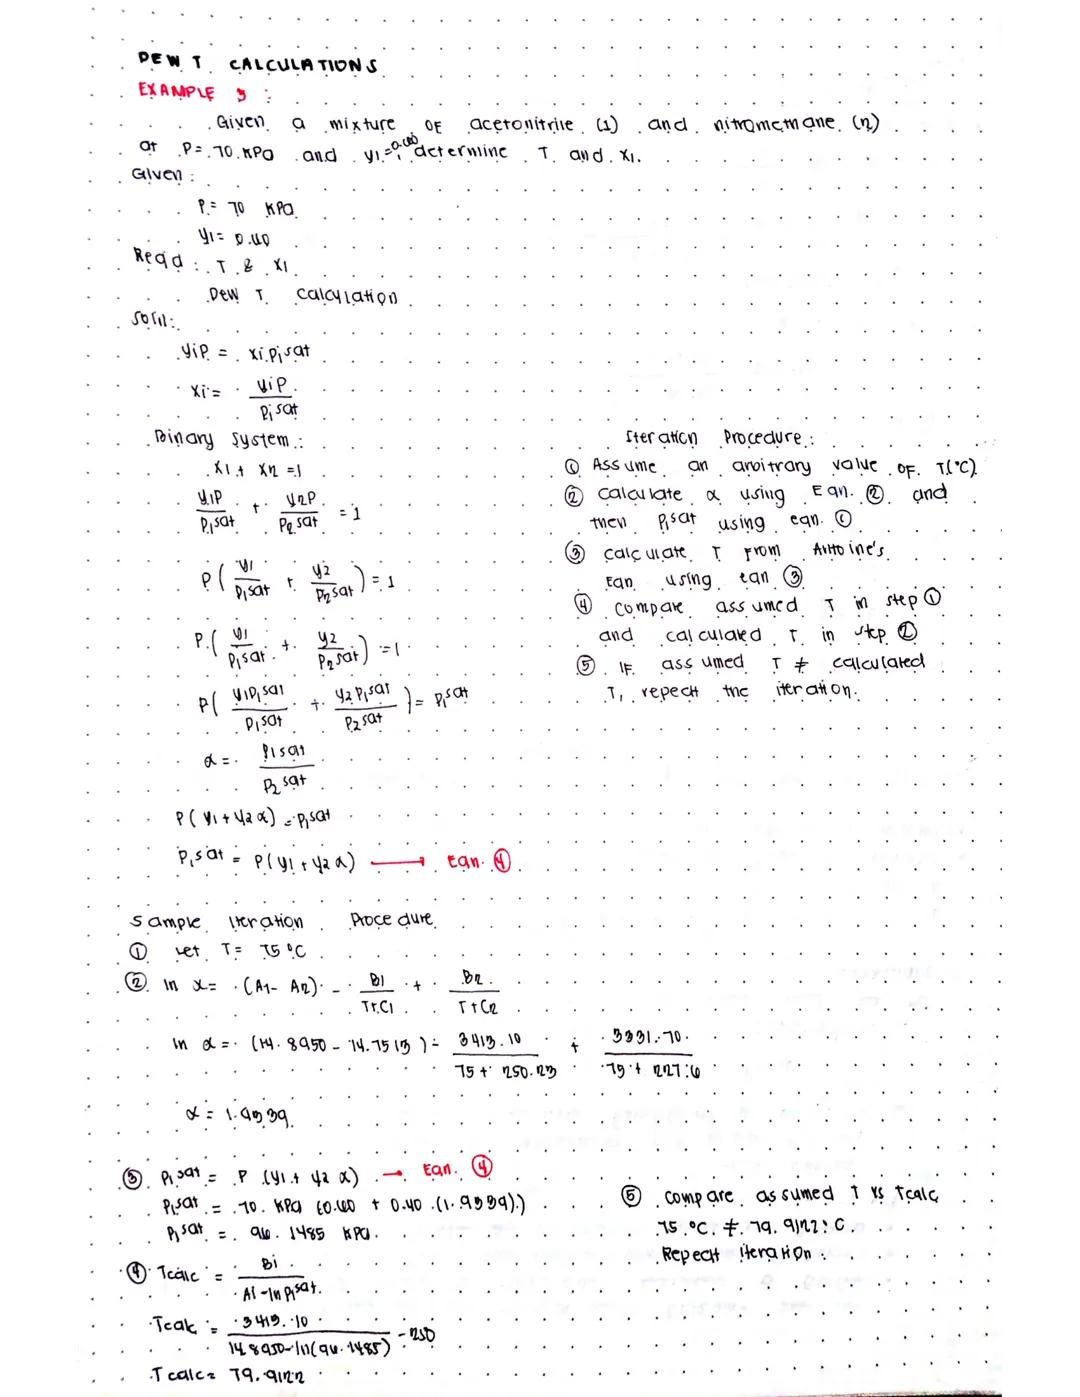 DEW T CALCULATIONS
EXAMPLE 3 :
Given a mixture OF acetonitrile (1) and nitromethane (2)
at P= 70 KPa and y1= 0.60 determine T and X1.
Given :
P= 70 KPa
y1= 0.60
Req'd : T & X1
Dew T Calculation
Sol'n:
yiP = xi Pisat
Xi = yiP / Pisat
Binary System :
X1 + X2 =1
y1P / P1sat + y2P / P2sat = 1
P ( y1 / P1sat + y2 / P2sat ) = 1
P ( y1 / P1sat + y2 / P2sat ) = 1
P ( y1P1sat / P1sat + y2 P1sat / P2sat ) = P1sat
α = P1sat / P2sat
P ( y1 + y2 α ) = P1sat
P1sat = P ( y1 + y2 α ) → Eqn. ④
Iteration Procedure :
① Assume an arbitrary value OF T(°C)
② Calculate α using Eqn. ② and
then P1sat using eqn. ①
③ calculate T from Antoine's
Eqn using eqn ③
④ compare assumed T in step ①
and calculated T in step ②
⑤ IF assumed T ≠ calculated
T, repeat the iteration.
Sample Iteration Procedure
① Let T= 75 °C
② ln α = (A1- A2) - B1 / T+C1 + B2 / T+C2
ln α = (14.8950 - 14.7513 ) - 3413.10 / 75 + 250.23 + 3331.70 / 75 + 227.6
α = 1.9339
③ P1sat = P (y1 + y2 α) → Eqn. ④
P1sat = 70 KPa (0.60 + 0.40 (1.9339))
P1sat = 96.1485 KPa
④ Tcalc = Bi / Ai - ln Pisat
Tcalc = 3413.10 / 14.8950-ln(96.1485) - 250
Tcalc= 79.9122
⑤ Compare assumed T vs Tcalc
75 °C ≠ 79.9122°C
Repeat iteration :